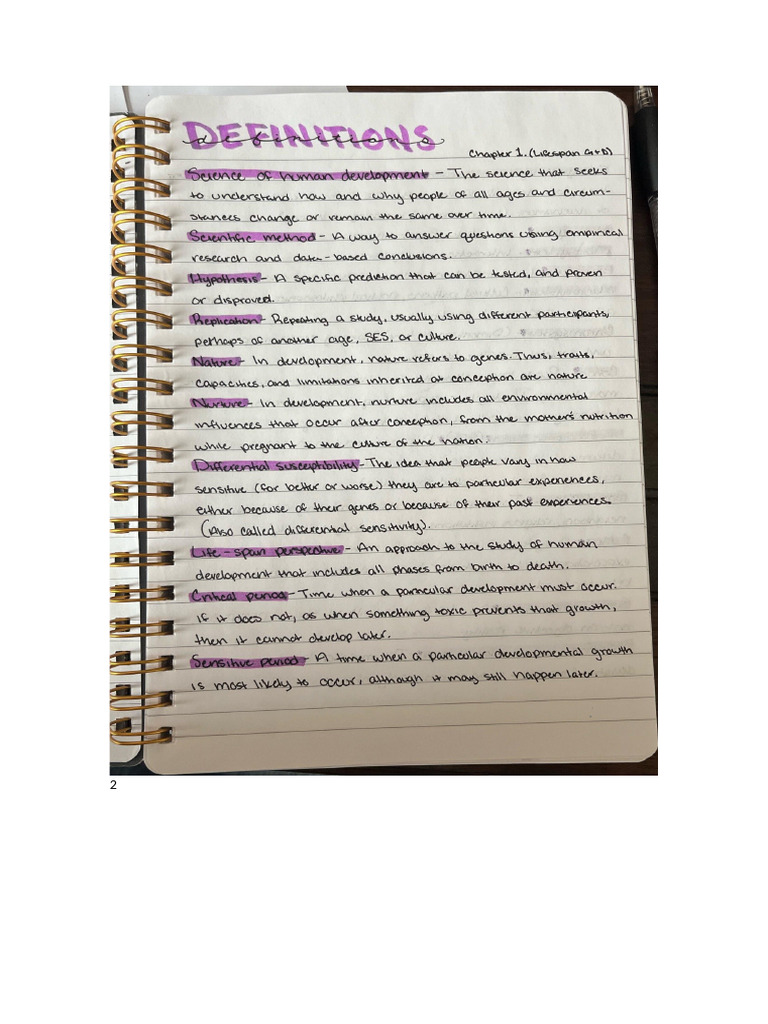 DEFINITIONS
definitions
Chapter 1. (Lifespan G+D)
Science of human development - The science that seeks
to understand how and why people of all ages and circum-
stances change or remain the same over time.
Scientific method - A way to answer questions using empirical
research and data-based conclusions.
Hypothesis - A specific prediction that can be tested, and proven
or disproved.
Replication - Repeating a study, usually using different participants,
perhaps of another age, SES, or culture.
Nature - In development, nature refers to genes. Thus, traits,
capacities, and limitations inherited at conception are nature
Nurture - In development, nurture includes all environmental
influences that occur after conception, from the mother's nutrition
while pregnant to the culture of the nation.
Differential susceptibility - The idea that people vary in how
sensitive (for better or worse) they are to particular experiences,
either because of their genes or because of their past experiences.
(Also called differential sensitivity).
Life-span perspective - An approach to the study of human
development that includes all phases from birth to death.
Critical period - Time when a particular development must occur.
If it does not, as when something toxic prevents that growth,
then it cannot develop later.
Sensitive period - A time when a particular developmental growth
is most likely to occur, although it may still happen later.
2